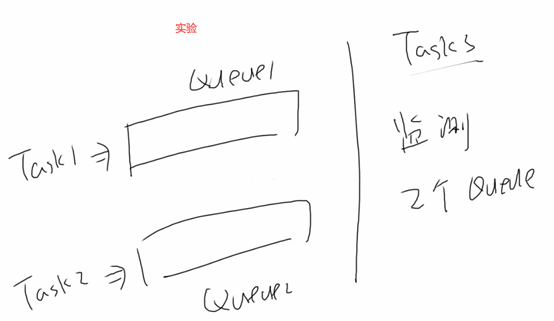 实验
Queue1
Task1 =>
Task2 =>
Queue2
Task3
监测
2个 Queue